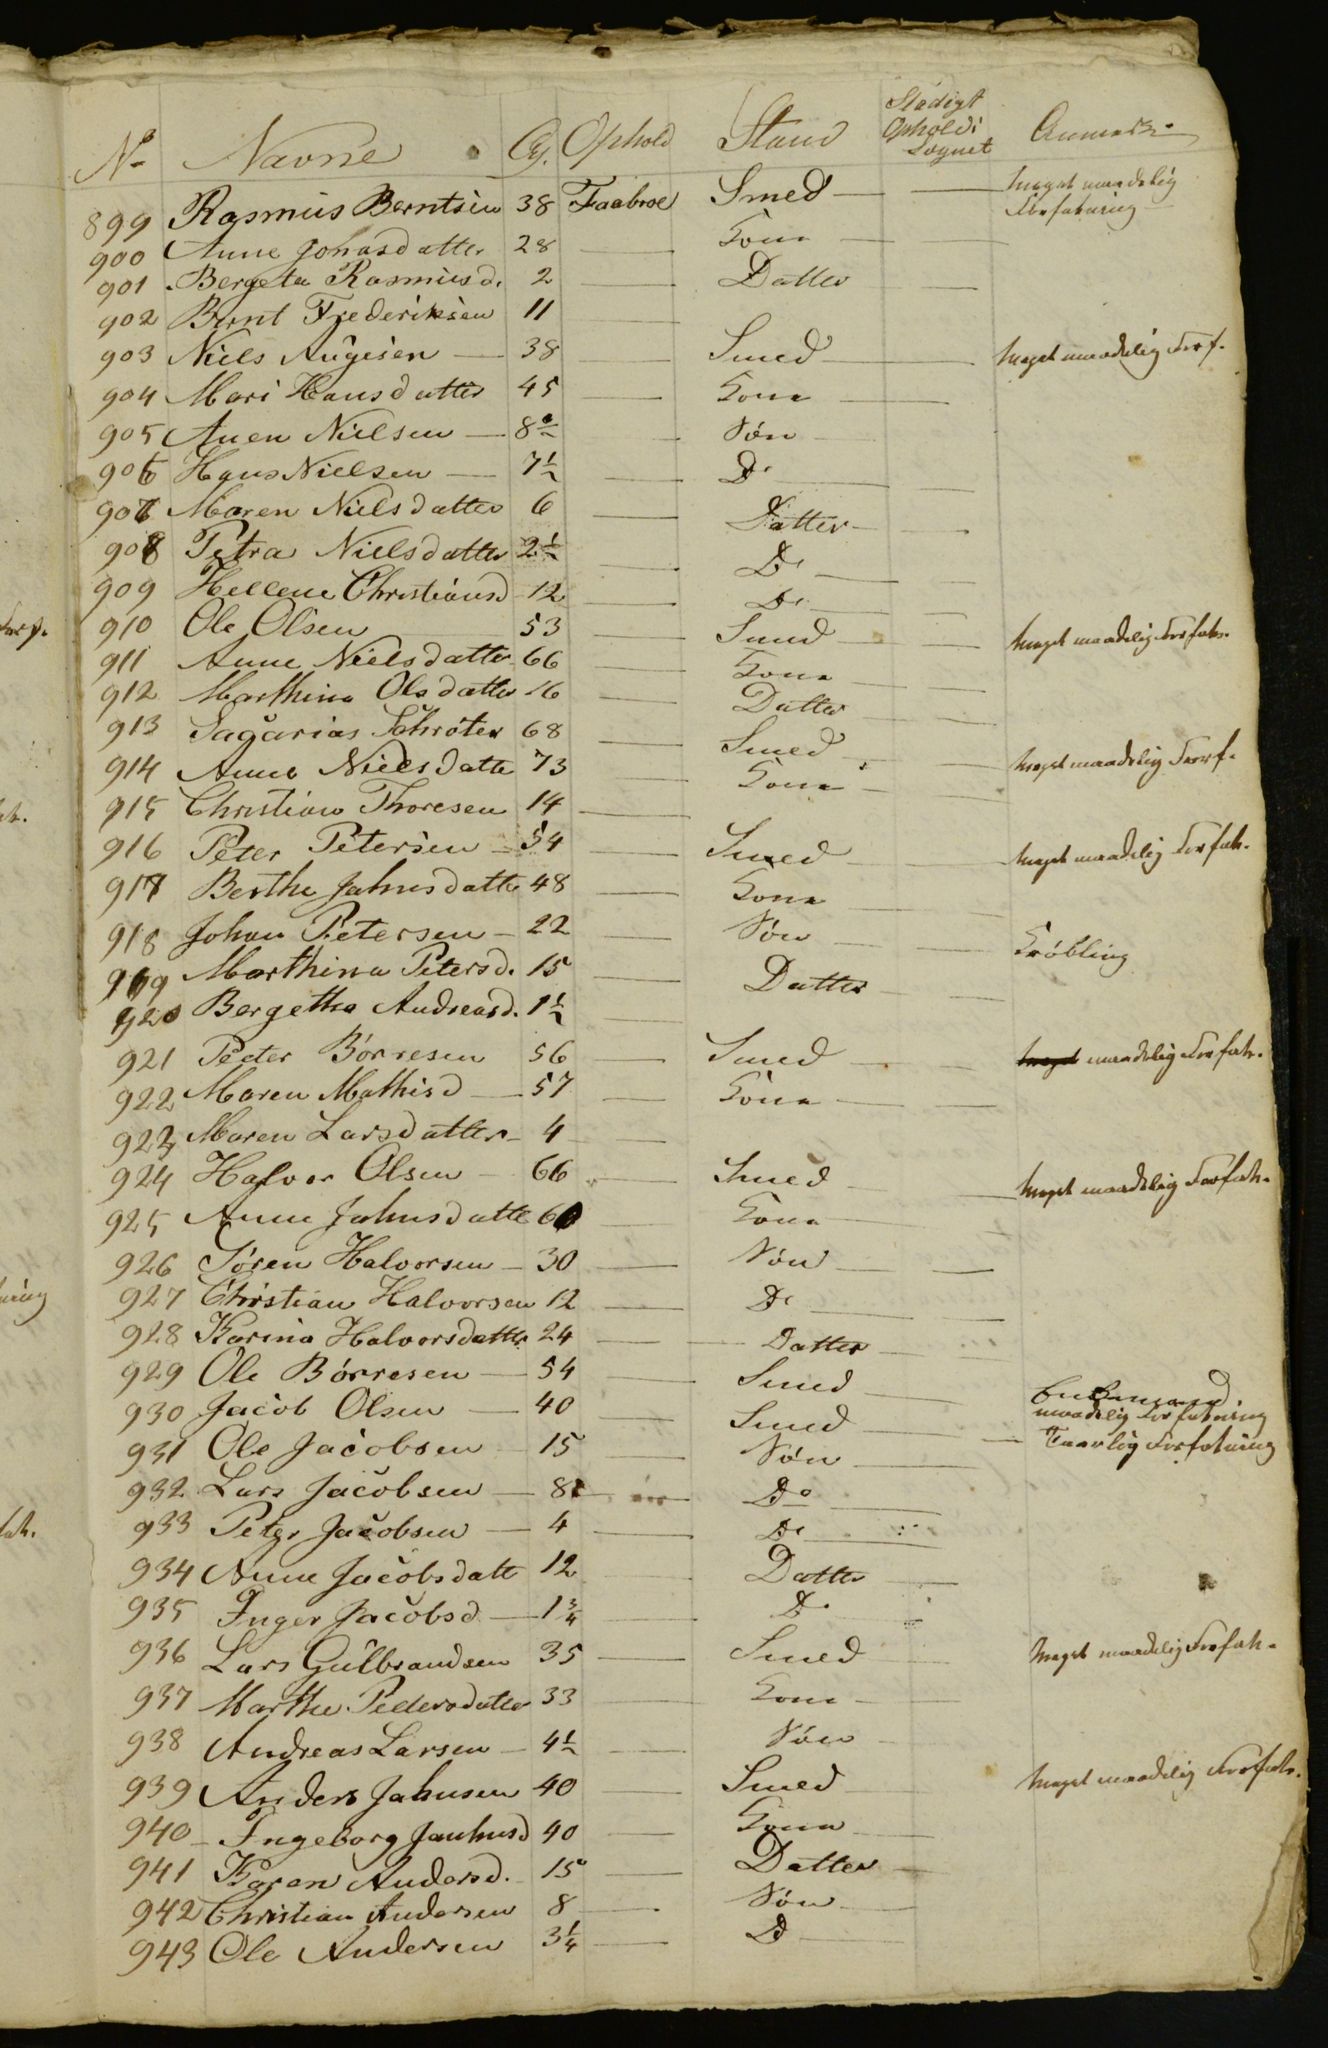 No Navne Ag. Ophold Stand Stadigt Opholdi Sognet Anmærk.
899 Rasmus Berntsen 38 Faabroe Smed — — meget maadelig Forfatning
900 Anne Johasdatter 28 — Kone —
901 Bergeta Rasmusd. 2 — Datter —
902 Bernt Frederiksen 11 —
903 Niels Augesen — 38 — Smed — meget maadelig Forf.
904 Mari Hansdatter 45 — Kone —
905 Auen Nielsen — 8 — Søn —
906 Hans Nielsen — 7½ — Do —
907 Maren Nielsdatter 6 — Datter —
908 Petra Nielsdatter 2½ — Do —
909 Hellene Christiansd 12 — Do —
910 Ole Olsen 53 — Smed — meget maadelig Forfatn.
911 Anne Nielsdatter 66 — Kone —
912 Marthina Olsdatter 16 — Datter —
913 Sacarias Schrøter 68 — Smed — meget maadelig Forf.
914 Anne Nielsdatte 73 — Kone —
915 Christian Thoresen 14 —
916 Peter Petersen — 54 — Smed — meget maadelig Forfatn.
917 Berthe Jahnsdatte 48 — Kone —
918 Johan Petersen — 22 — Søn — Krøbling
919 Marthina Petersd. 15 — Datter —
920 Bergetha Andreasd. 1½ —
921 Peeter Børresen 56 — Smed — meget maadelig Forfatn.
922 Maren Mathisd — 57 — Kone —
923 Maren Larsdatter — 4 —
924 Halvor Olsen — 66 — Smed — meget maadelig Forfatn.
925 Anne Jahnsdatte 60 Kone —
926 Søren Halvorsen — 30 — Søn —
927 Christian Halvorsen 12 — Do —
928 Karina Halvorsdatter 24 — Datter —
929 Ole Børresen — 54 — Smed — Enkemand maadelig Forfatning
930 Jacob Olsen — 40 — Smed — Taarlig Forfatning
931 Ole Jacobsen — 15 — Søn —
932 Lars Jacobsen — 8 — Do —
933 Peter Jacobsen — 4 — Do —
934 Anne Jacobsdatt 12 — Datter —
935 Inger Jacobsd — 1¾ — Do —
936 Lars Gulbrandsen 35 — Smed — meget maadelig Forfatn.
937 Marthe Pedersdatter 33 — Kone —
938 Andreas Larsen — 4½ — Søn —
939 Anders Jahnsen 40 — Smed — meget maadelig Forfatn.
940 Ingeborg Jauhnsd 40 — Kone —
941 Karen Andersd. — 15 — Datter —
942 Christian Andersen 8 — Søn —
943 Ole Andersen 3¼ — Do —